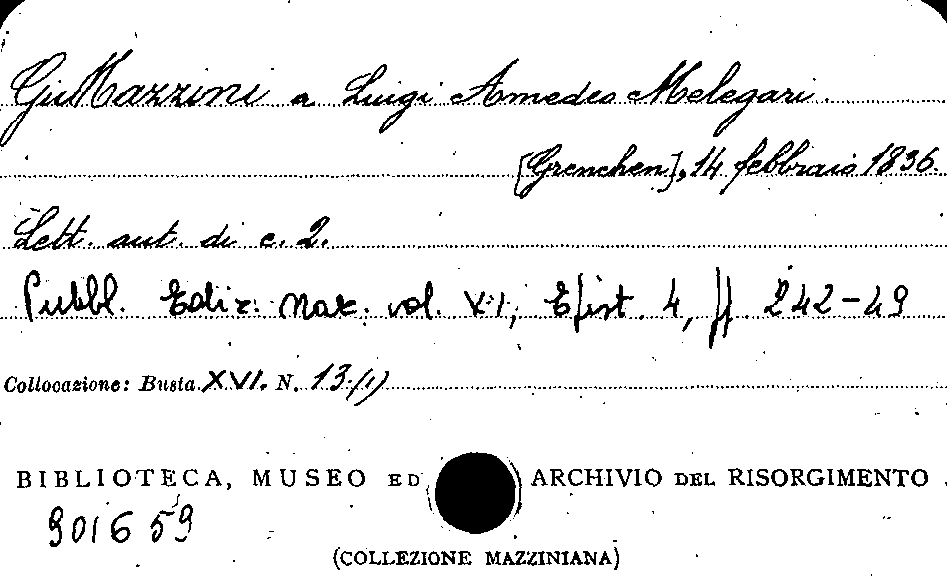 Gi. Mazzini a Luigi Amedeo Melegari.
[Grenchen], 14 febbraio 1836.
Lett. aut. di c. 2.
Pubbl. Ediz. Naz. vol. XII, Epist. 4, pp. 242-49
Collocazione: Busta XVI. N. 13/(1)
BIBLIOTECA, MUSEO ED ARCHIVIO DEL RISORGIMENTO
901659
(COLLEZIONE MAZZINIANA)